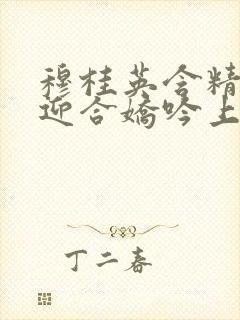 穆桂英含精
迎合娇吟上
丁二春